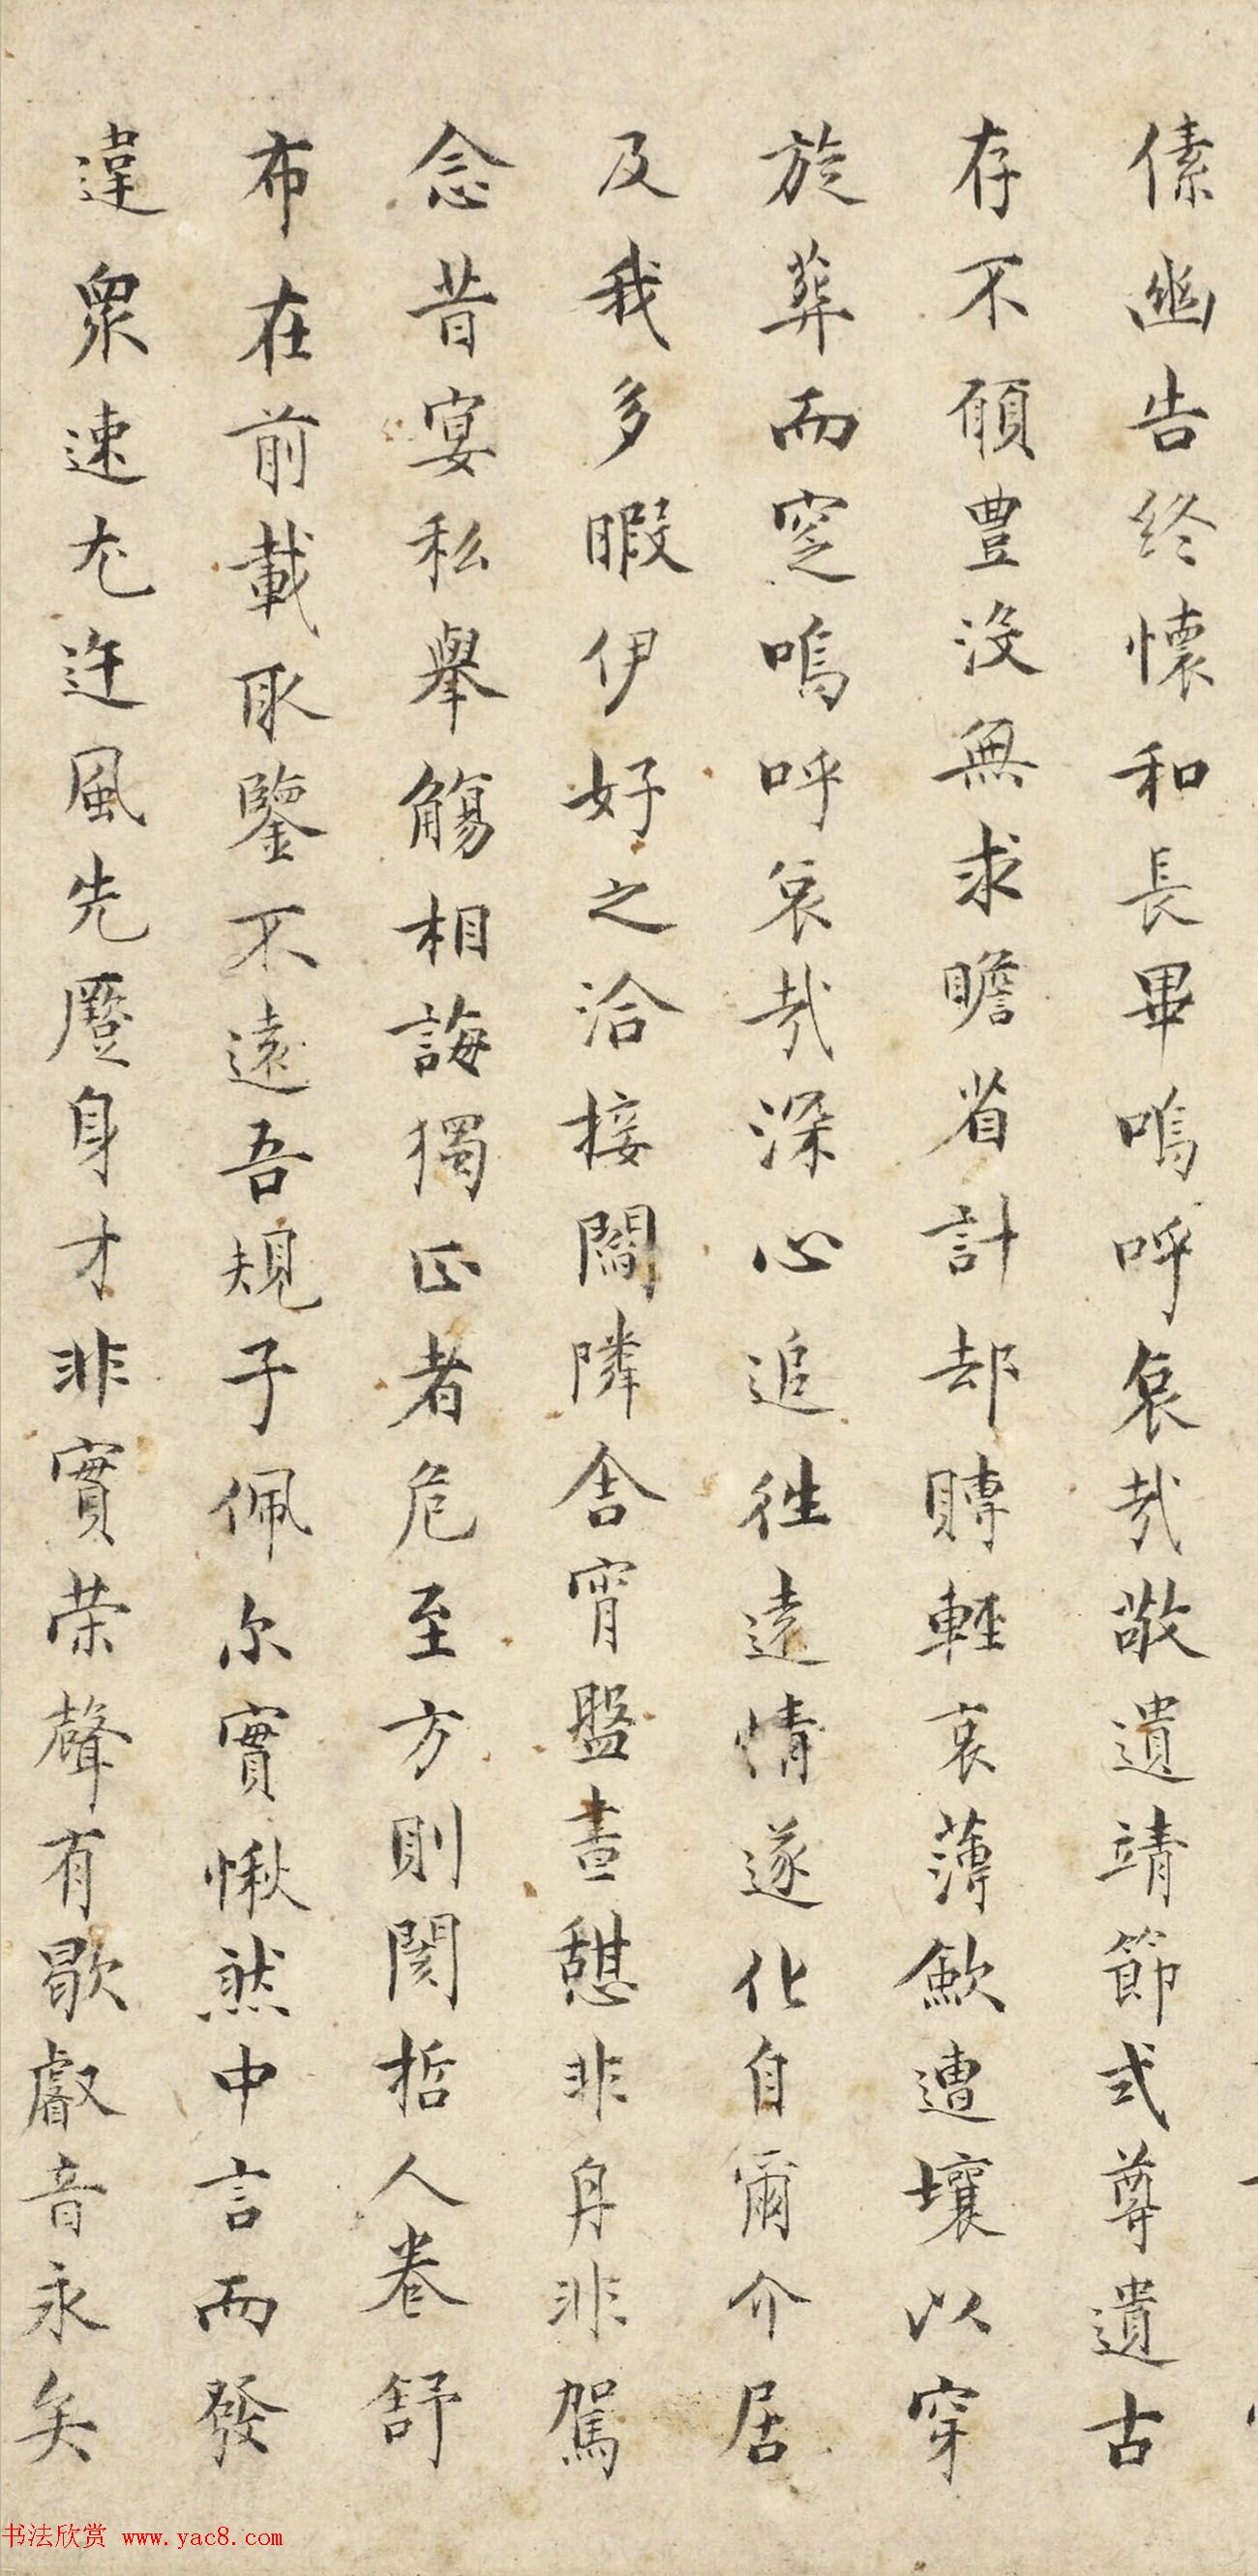 傃幽告终懷和長畢嗚呼哀哉敬遺靖節式尊遺古
存不願豊没無求贍省計却賻輕哀薄歛遭壤以穿
旋葬而窆嗚呼哀哉深心追徃逺情遂化自爾介居
及我多暇伊好之洽接閻隣舎宵盤晝憩非舟非駕
念昔宴私舉觴相誨獨正者危至方則閡哲人卷舒
布在前載取鑒不遠吾規子佩尔實愀然中言而發
違衆速尤迕風先蹷身才非實荣聲有歇叡音永矣
书法欣赏 www.yac8.com